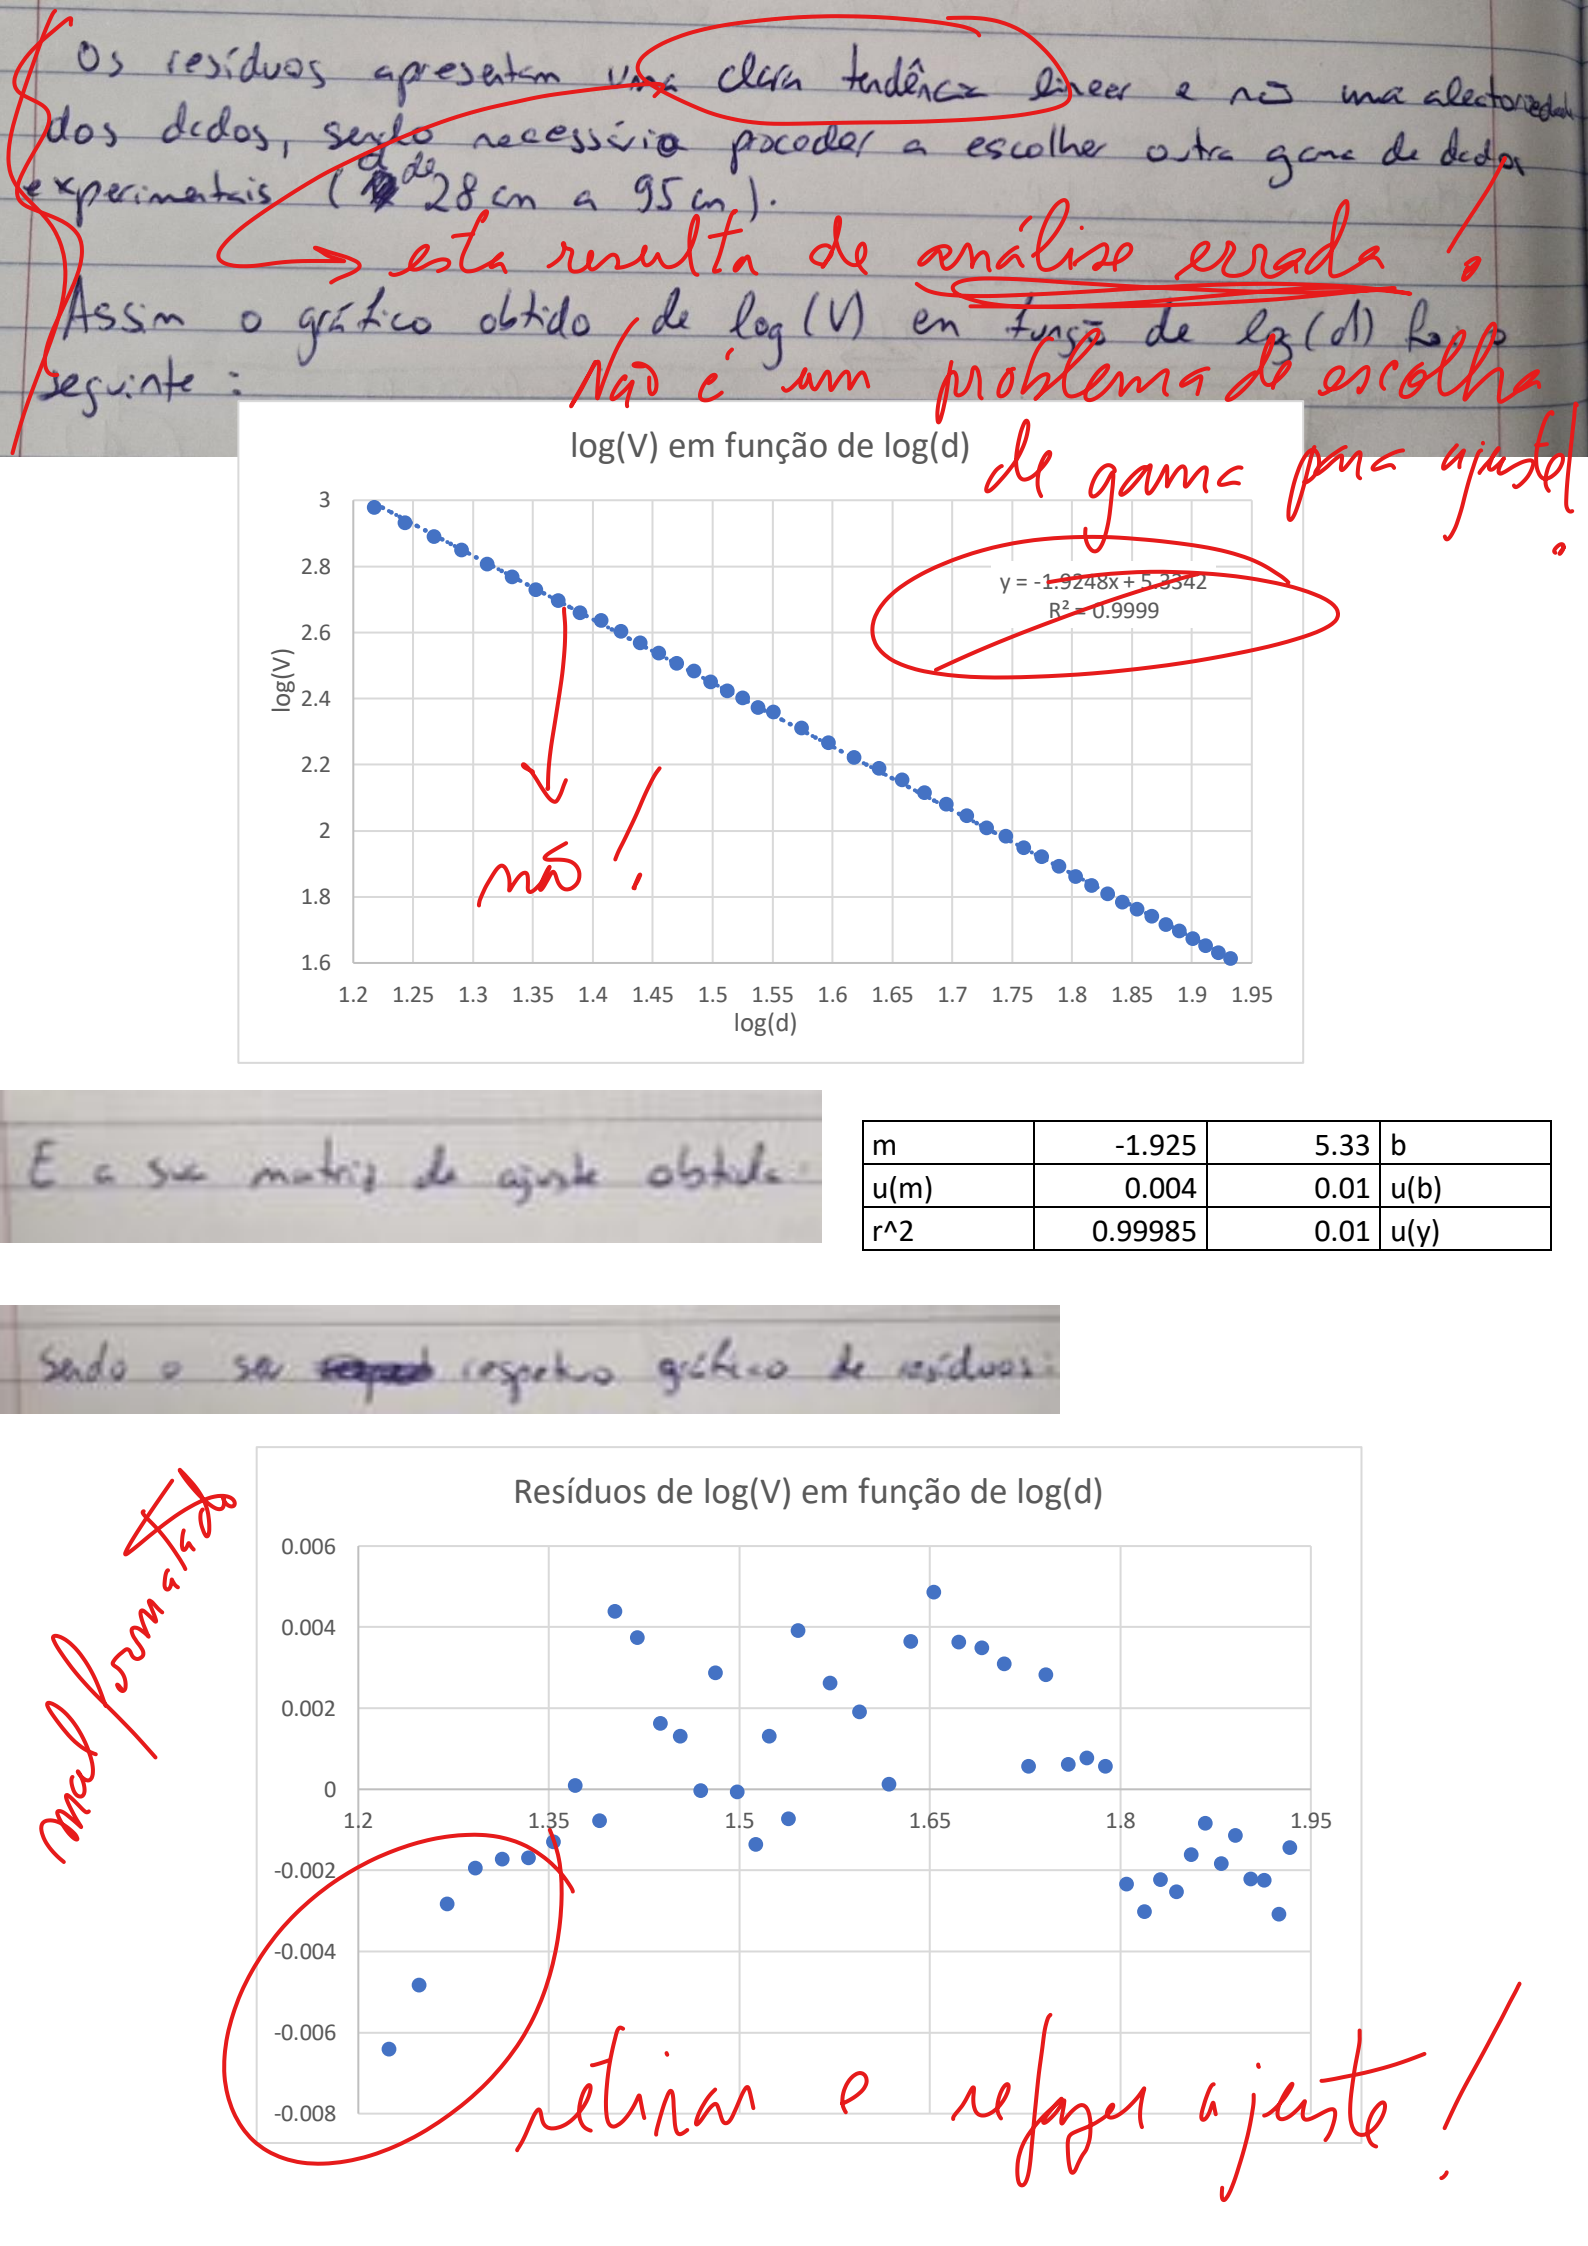 Os resíduos apresentam uma clara tendência linear e não uma aleatoriedade
dos dados, sendo necessário proceder a escolher outra gama de dados
experimentais (de 28 cm a 95 cm).
esta resulta de análise errada!
Assim o gráfico obtido de log(V) em função de log(d) foi o
seguinte:
Não é um problema de escolha
de gama para ajuste!
log(V) em função de log(d)
y = -1.9248x + 5.3342
R² = 0.9999
3
2.8
2.6
2.4
2.2
2
1.8
1.6
log(V)
não!
1.2 1.25 1.3 1.35 1.4 1.45 1.5 1.55 1.6 1.65 1.7 1.75 1.8 1.85 1.9 1.95
log(d)
E a sua matriz de ajuste obtida:
m -1.925 5.33 b
u(m) 0.004 0.01 u(b)
r^2 0.99985 0.01 u(y)
Sendo o seu respetivo gráfico de resíduos:
mal formatado
Resíduos de log(V) em função de log(d)
0.006
0.004
0.002
0
-0.002
-0.004
-0.006
-0.008
1.2 1.35 1.5 1.65 1.8 1.95
retirar e refazer ajuste!